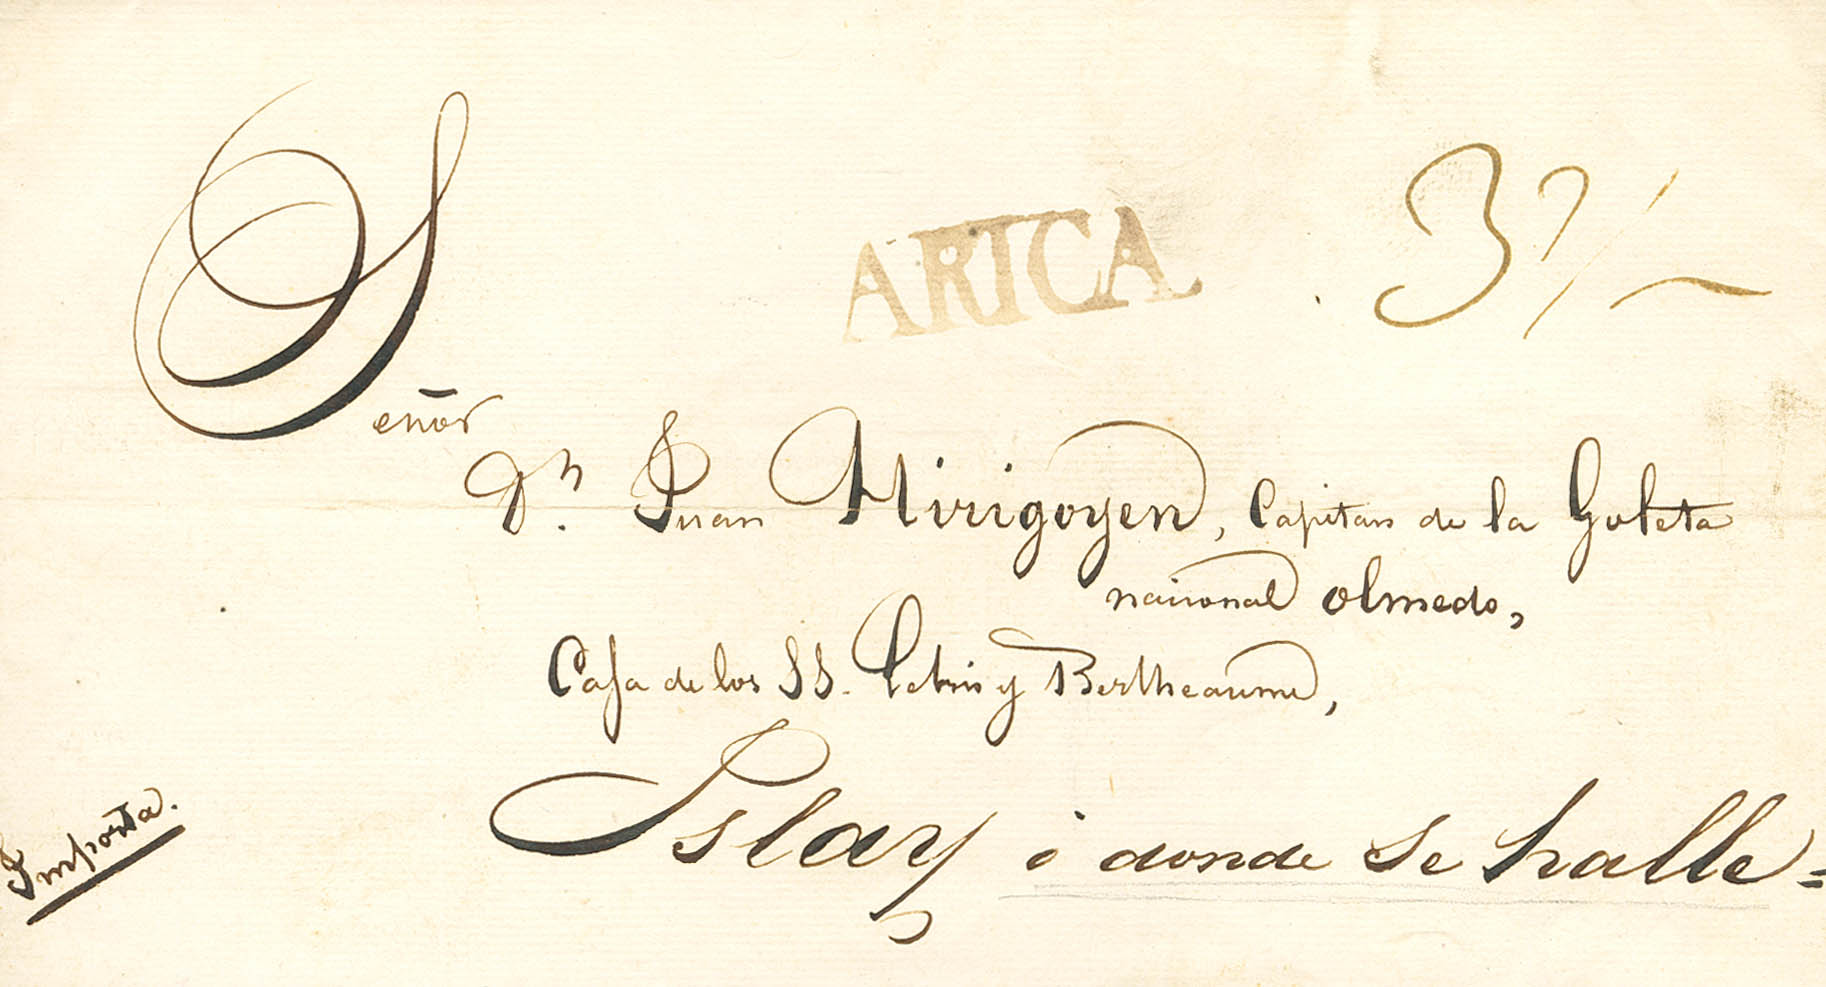 ARICA
Señor
Dn. Juan Hirigoyen, Capitan de la Goleta
nacional Olmedo,
Casa de los SS. y Bertheaume,
Islay ó donde se halle=
Importa.